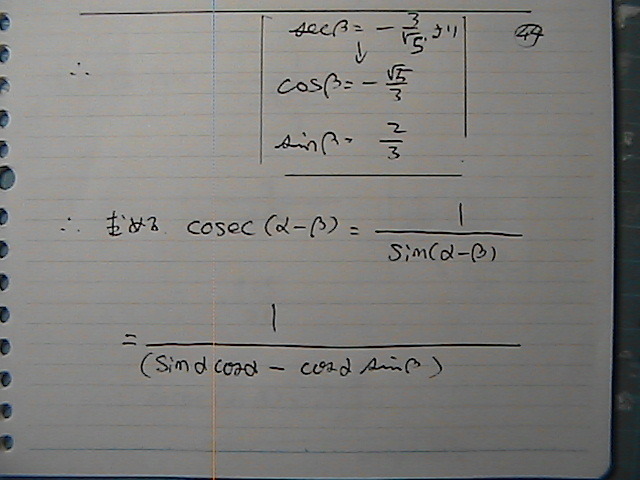 secβ = - 3/√5 より ㊹
↓
∴ cosβ = - √5/3
sinβ = 2/3
∴ 求める cosec (α-β) = 1/sin(α-β)
= 1/(sinα cosα - cosα sinβ)